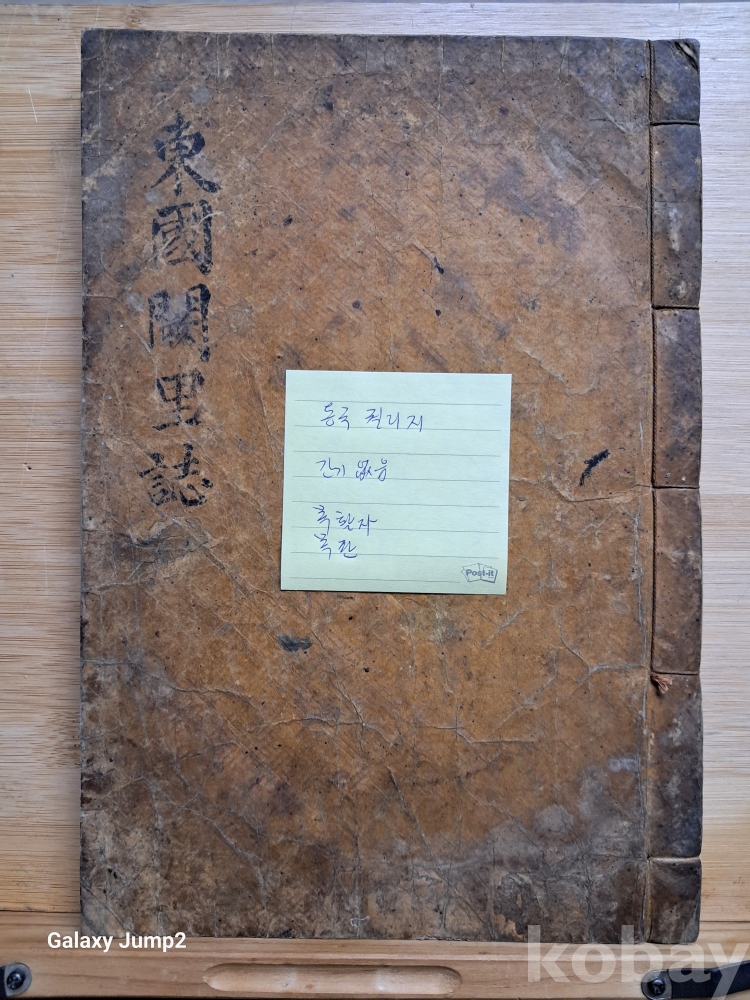 東國闕里誌
동국 궐리지
간기 없음
목활자
목판
Post-it
Galaxy Jump2
kobay